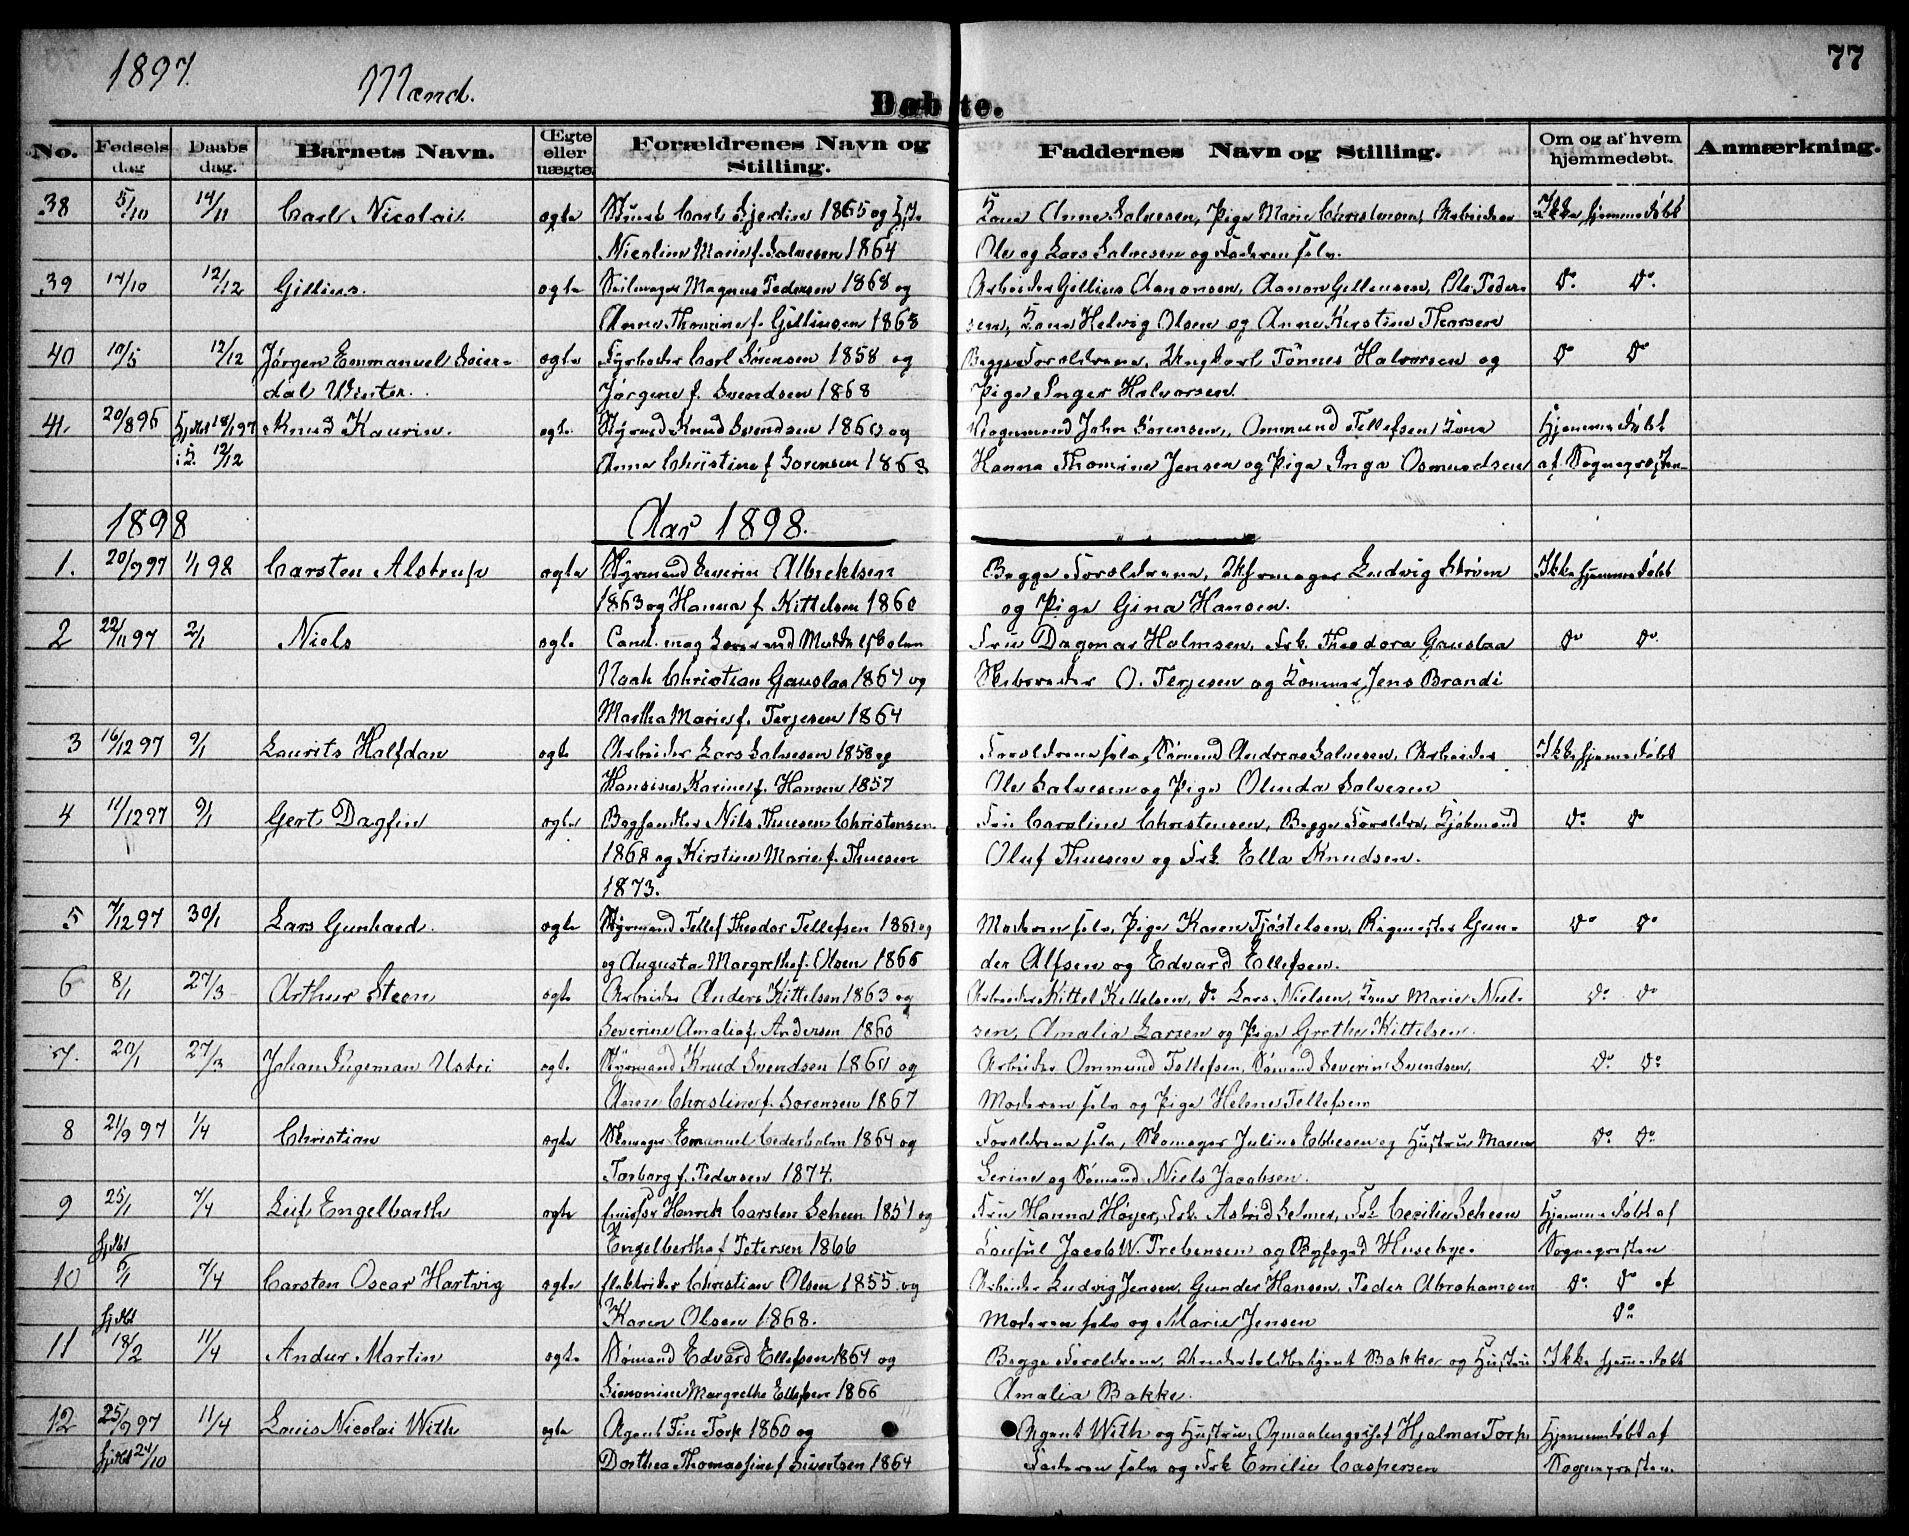 77
1897. Mænd.
Døbte.
No. Fødsels dag Daabs dag. Barnets Navn. Ægte eller uægte. Forældrenes Navn og Stilling. Faddernes Navn og Stilling. Om og af hvem hjemmedøbt. Anmærkning.
38 5/10 14/11 Carl Nicolai. ægte Carl Gjerdin 1865 og Kone Anne Salvesen, Pige Marie Christensen, Arbeider Ikke hjemmedøbt
Nicoline Marie f. Salvesen 1864 Ole og Lars Salvesen og Faderen selv.
39 14/10 12/12 Gillius. ægte Seilmager Magnus Pedersen 1868 og Arbeider Gillius Aanonsen, Aanon Gelleusen, Ole Peder- Do Do
Anne Thomine f. Gilliusen 1868 sen, Kone Helvig Olsen og Anne Kirstine Thorsen
40 10/5 12/12 Jørgen Emmanuel Soier- ægte Fyrbøder Carl Sørensen 1858 og Begge Forældrene, Ungkarl Tönnes Halvorsen og Do Do
dal Winter. Jørgine f. Svendsen 1868 Pige Inger Halvorsen
41. 20/8 96 hjdbt 18/1 97 Knud Kaurin. ægte. Styrmd Knud Svendsen 1860 og Vognmand John Sörensen, Ommund Tellefsen, Kone Hjemmedøbt
i K. 12/12 Anne Christine f. Sorensen 1868 Hanna Thomine Jensen og Pige Inga Osmundsen af Sognepresten
1898 Aar 1898.
1. 20/9 97 1/1 98 Carsten Alstrup ægte Styrmand Severin Albrektsen Begge Forældrene, Uhrmager Ludvig Ström Ikke hjemmedøbt
1863 og Hanna f. Kittelsen 1860 og Pige Gina Hansen.
2 22/11 97 2/1 Niels ægte Cand. mag. Noah Christian Gauslaa 1864 og Fru Dagmar Holmsen, Frk. Theodora Gauslaa Do Do
Martha Marie f. Terjesen 1864 Skibsreder O. Terjesen og Jens Brandi
3 16/12 97 9/1 Laurits Halfdan ægte Arbeider Lars Salvesen 1858 og Forældrene selv, Sømand Andreas Salvesen, Arbeider Ikke hjemmedøbt
Hansine Karine f. Hansen 1857 Ole Salvesen og Pige Olinda Salvesen
4 11/12 97 9/1 Gert Dagfin ægte Boghandler Nils Thuesen Christensen Fru Caroline Christensen, Begge Forældre, Kjøbmand Do Do
1868 og Kirstine Marie f. Thuesen Oluf Thuesen og Frk. Ella Knudsen.
1873.
5 7/12 97 30/1 Lars Gunhard. ægte Styrmand Tellef Theodor Tellefsen 1861 og Moderen selv, Pige Karen Tjöstelsen, Rigmester Gun- Do Do
og Augusta Margrethe f. Olsen 1866 der Alfsen og Edvard Ellefsen.
6 8/1 27/3 Arthur Steen ægte Arbeider Anders Kittelsen 1863 og Arbeider Kittel Kittelsen, Do Lars Nielsen, Kone Marie Niel- Do Do
Severine Amalia f. Andersen 1860 sen, Amalia Larsen og Pige Grethe Kittelsen.
7. 20/1 27/3 Johan Ingeman Ustri ægte. Styrmand Knud Svendsen 1860 og Arbeider Ommund Tellefsen, Sømand Severin Svendsen, Do Do
Anne Christine f. Sorensen 1867 Moderen selv og Pige Helene Tellefsen
8 21/9 97 1/4 Christian ægte Skomager Emanuel Cederholm 1864 og Forældrene selv, Skomager Julius Ebbesen og Hustru Maren Do Do
Torborg f. Pedersen 1874. Serine og Sømand Niels Jacobsen.
9 25/1 7/4 Leif Engelbarth ægte Henrik Carsten Scheen 1851 og Fru Hanna Høyer, Frk. Astrid Selmer, Frk. Cecilie Scheen Hjemmedøbt af
hjdbt Engelbertha f. Petersen 1866 Konsul Jacob W. Prebensen og Byfoged Husebye. Sognepresten
10 6/1 7/4 Carsten Oscar Hartvig ægte Christian Olsen 1855 og Arbeider Ludvig Jensen, Gunder Hansen, Peder Abrahamsen Do Do af
hjdbt Karen Olsen 1868. Moderen selv og Marie Jensen Do
11 18/2 11/4 Andur Martin ægte Sømand Edvard Ellefsen 1864 og Begge Forældrene, Undertoldbetjent Bakke og Hustru Ikke hjemmedøbt
Simonine Margrethe Ellefsen 1866 Amalia Bakke.
12 25/9 97 11/4 Louis Nicolai With ægte Agent Fin Torp 1860 og Agent With og Hustru, Opmaalingschef Hjalmar Torp Hjemmedøbt af
hjdbt 24/10 Dorthea Thomassine f. Sivertsen 1864 Faderen selv og Frk Emilie Caspersen Sognepresten.